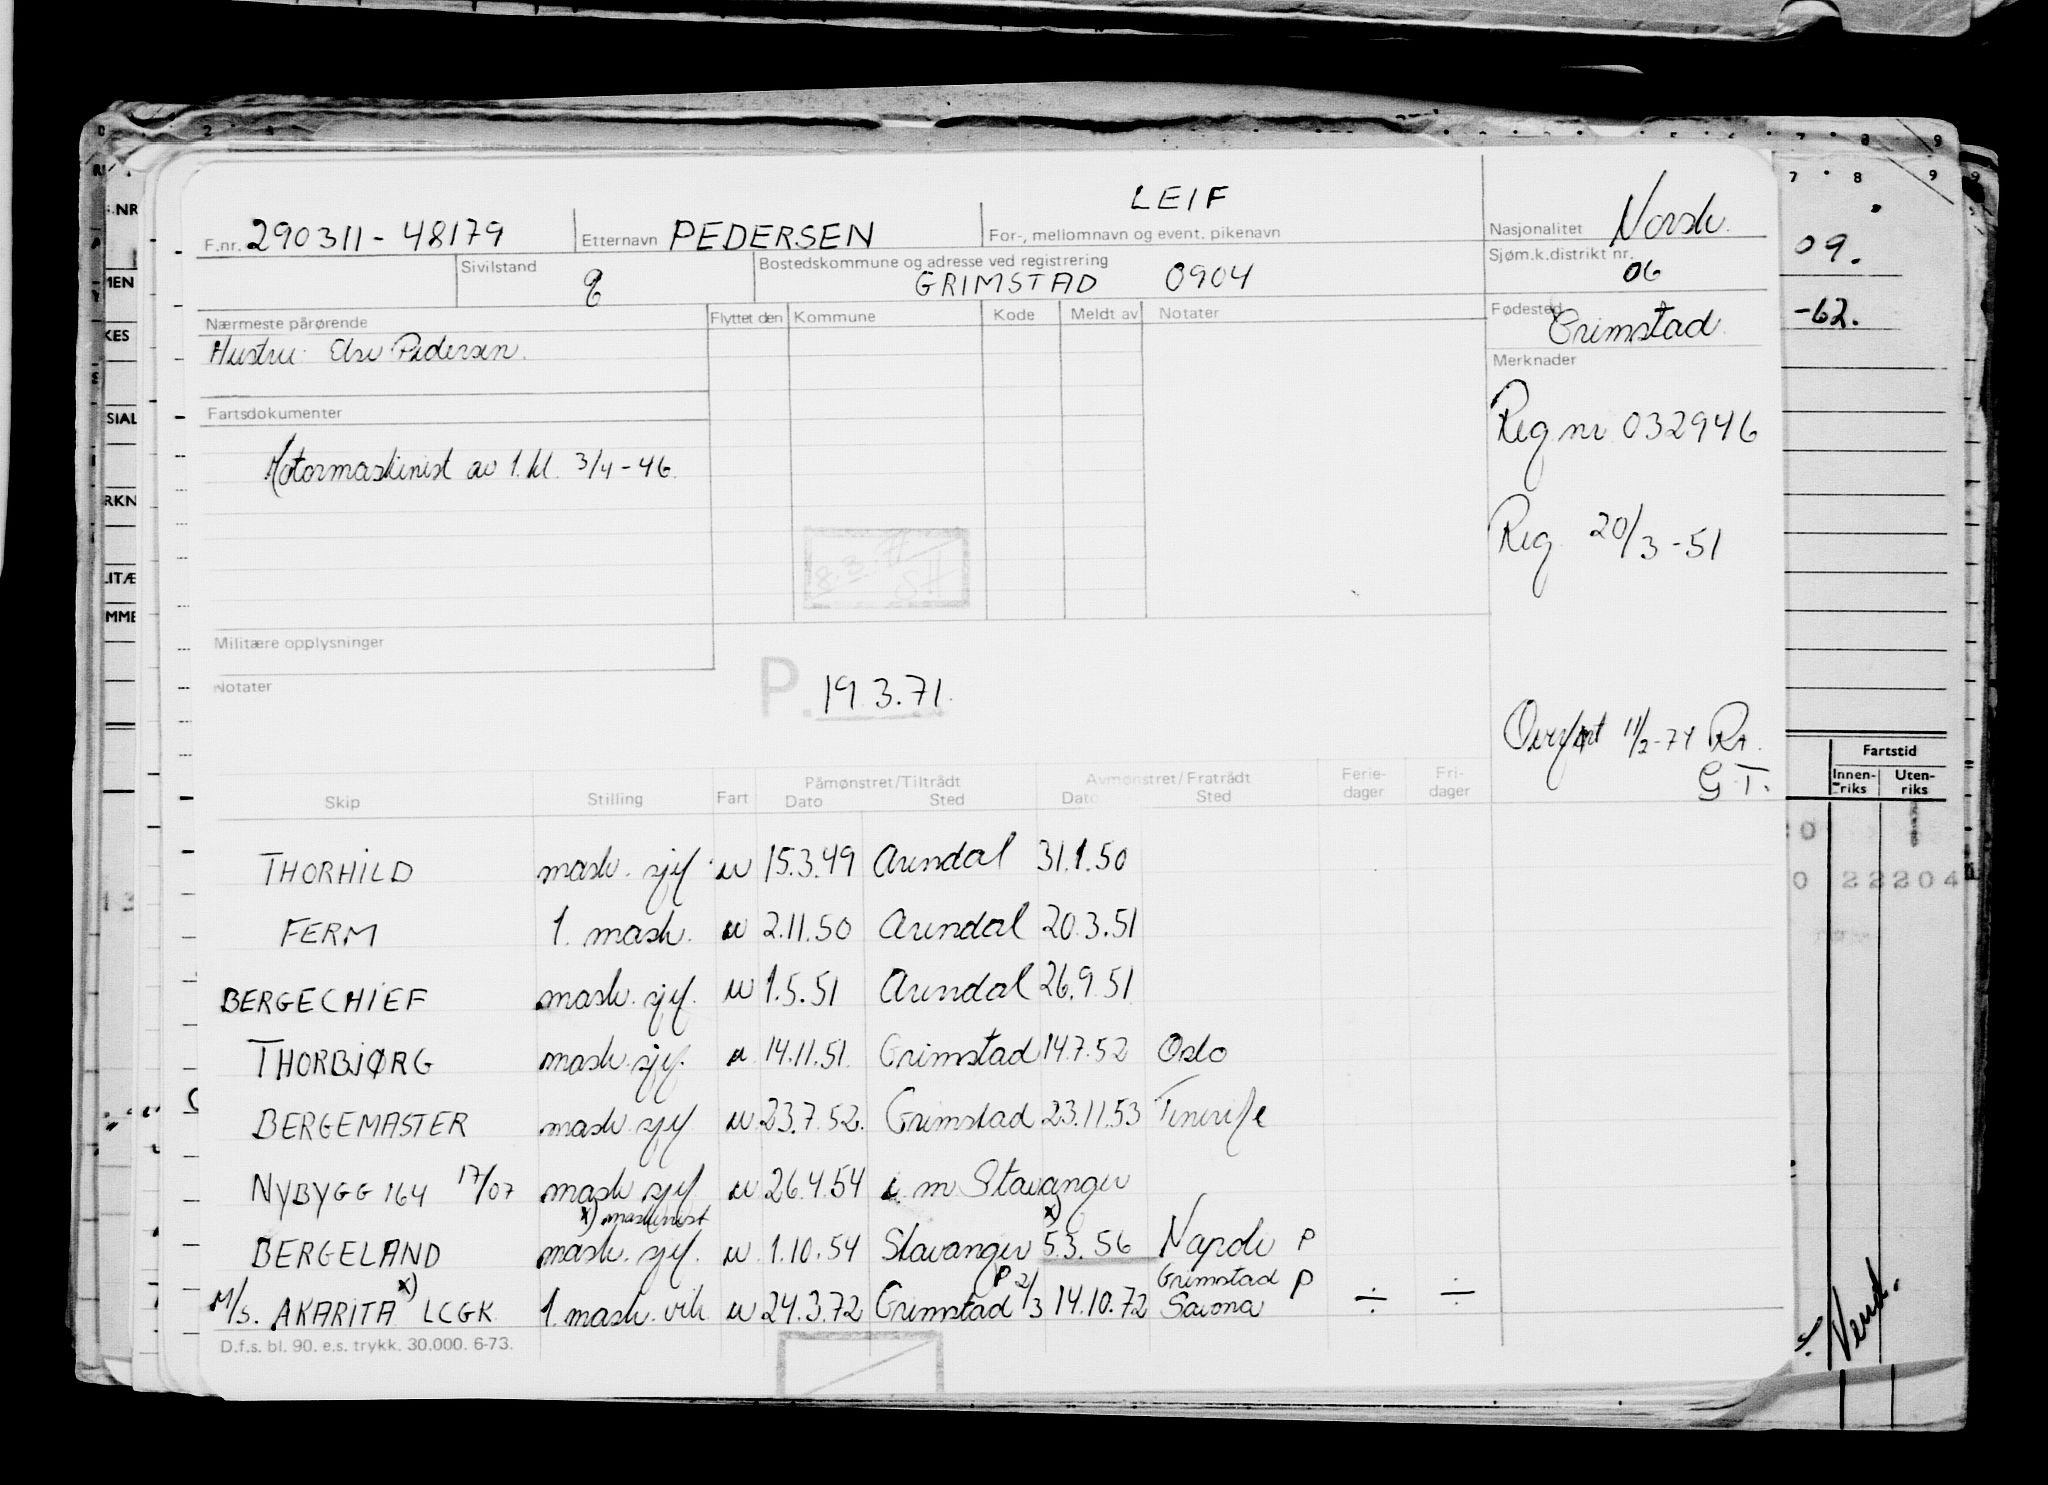 LEIF
F.nr. 290311-48179 Etternavn PEDERSEN For-, mellomnavn og event. pikenavn Nasjonalitet Norsk.
Sivilstand g Bostedskommune og adresse ved registrering GRIMSTAD 0904 Sjøm.k.distrikt nr. 06
Nærmeste pårørende Flyttet den Kommune Kode Meldt av Notater Fødested Grimstad
Hustru: Else Pedersen.
Merknader
Fartsdokumenter
Reg nr 032946
Motormaskinist av 1. kl. 3/4-46.
Reg. 20/3-51
8.3.71
Militære opplysninger
Notater
P. 19.3.71.
Overført 11/2-74 RA.
G T.
Skip Stilling Fart Påmønstret/Tiltrådt Dato Sted Avmønstret/Fratrådt Dato Sted Ferie-dager Fri-dager
THORHILD mask. sjef u 15.3.49 Arendal 31.1.50
FERM 1. mask. u 2.11.50 Arendal 20.3.51
BERGECHIEF mask. sjef. u 1.5.51 Arendal 26.9.51
THORBJØRG mask. sjef. u 14.11.51 Grimstad 14.7.52 Oslo
BERGEMASTER mask. sjef u 23.7.52. Grimstad 23.11.53 Tenerife
NYBYGG 164 17/07 mask sjef u 26.4.54 m Stavanger
x) maskinist x)
BERGELAND mask. sjef. u 1.10.54 Stavanger 5.3.56 Napoli P
M/S. AKARITA x) LCGK 1. mask. vik u 24.3.72 Grimstad P 2/3 14.10.72 Grimstad P Savona ÷ ÷
D.f.s. bl. 90. e.s. trykk. 30.000. 6-73.
09.
-62.
Fartstid
Innen-riks Uten-riks
22204
Vend.